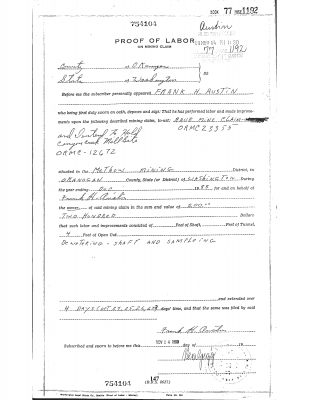 BOOK 77 PAGE 1192
754104
Austin
NOV 14 PM 1 20
77 1192
PROOF OF LABOR
ON MINING CLAIM
County of Okanogan
State of Washington } ss
Before me the subscriber personally appeared FRANK H. AUSTIN
who being first duly sworn on oath, deposes and says: That he has performed labor and made improve-
ments upon the following described mining claim, to-wit: MINE CLAIM
and Intend to Hold ORMC 23955
Millsite
ORMC-12672
situated in the METHOW MINING District, in
OKANOGAN County, State (or District) of WASHINGTON During
the year ending Dec 19 for and on behalf of
Frank H. Austin
the owner of said mining claim in the sum and value of 200.00
TWO HUNDRED Dollars
that such labor and improvements consisted of Feet of Shaft, Feet of Tunnel,
4 Feet of Open Cut
DEWATERING - SHAFT AND SAMPLEING
and extended over
4 DAYS (OCT days' time, and that the same was paid by said
Frank H. Austin
Subscribed and sworn to before me this NOV 14 day of 19
147
754104